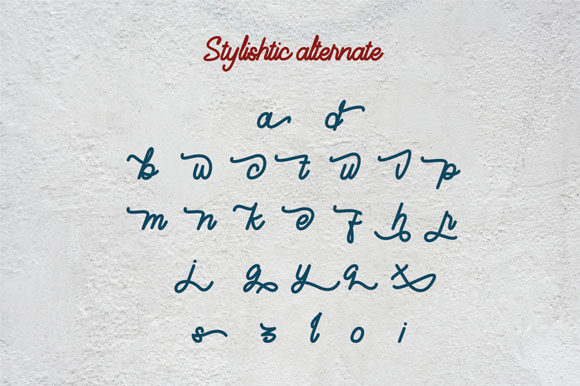 Stylishtic alternate
a d
b u c t w v p
m n k e f h r
j g y q x
s z l o i